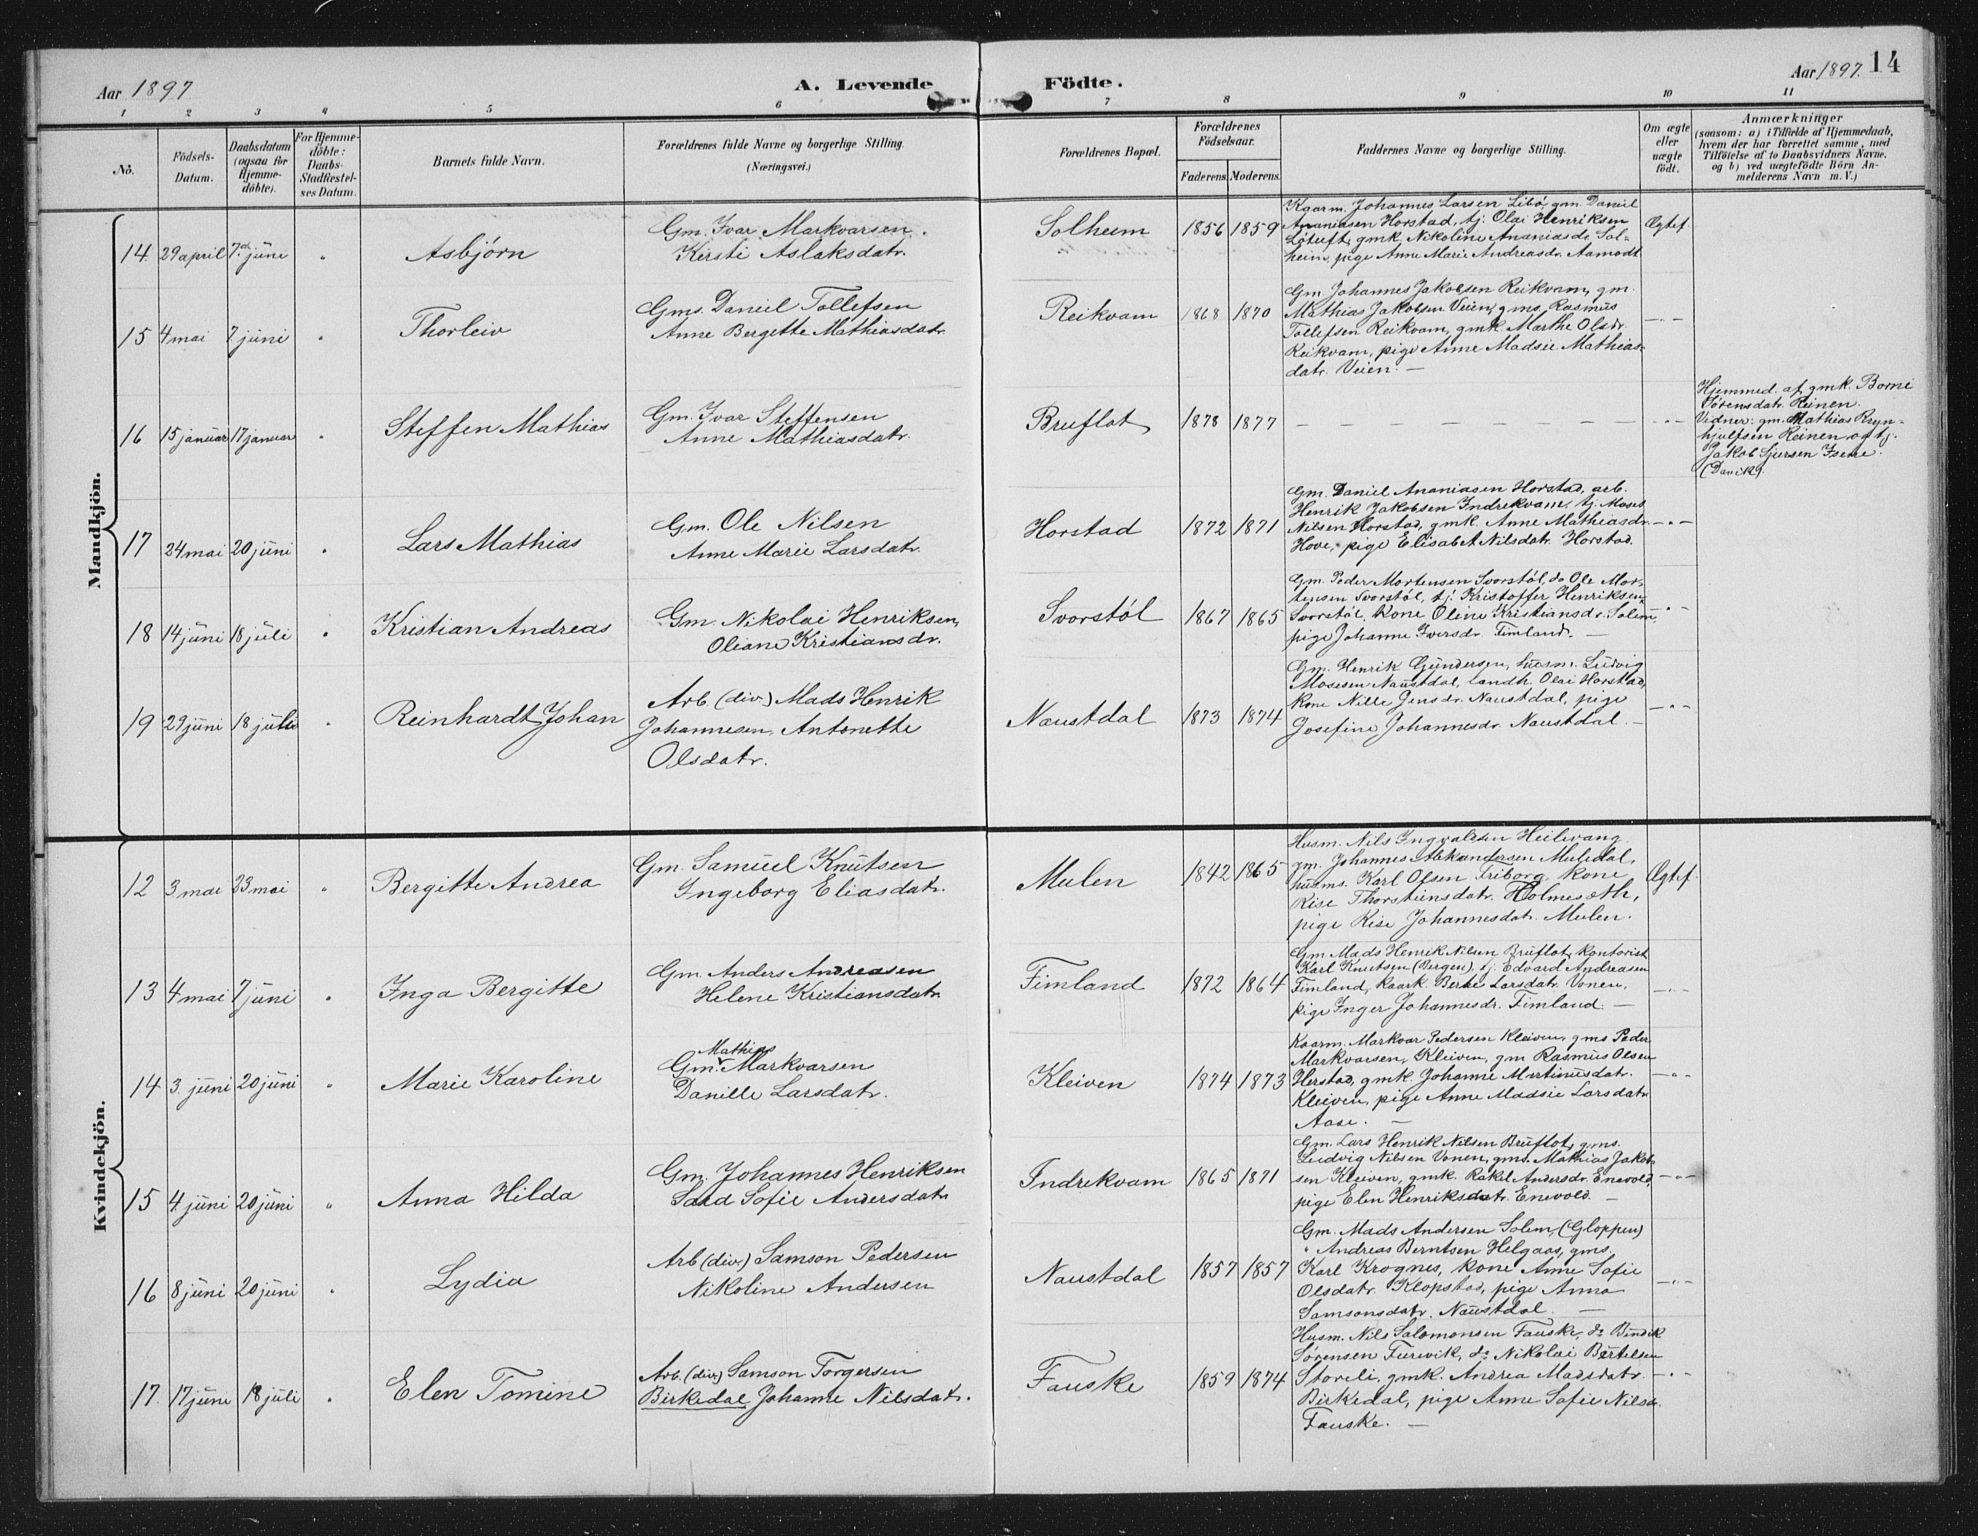 Aar 1897
A. Levende
Födte.
Aar 1897.
14
1 2 3 4 5 6 7 8 9 10 11
No.
Födsels-
Datum.
Daabsdatum
(ogsaa for
Hjemme-
döbte).
For Hjemme-
döbte:
Daabs-
Stadfæstel-
ses Datum.
Barnets fulde Navn.
Forældrenes fulde Navne og borgerlige Stilling.
(Næringsvei.)
Forældrenes Bopæl.
Forældrenes
Födselsaar.
Faderens. Moderens.
Faddernes Navne og borgerlige Stilling.
Om ægte
eller
uægte
födt.
Anmærkninger
(saasom: a) i Tilfælde af Hjemmedaab,
hvem der har forrettet samme, med
Tilföielse af to Daabsvidners Navne,
og b) ved uægtefödte Börn An-
melderens Navn m. V.)
Mandkjön.
14. 29 april 7de juni " Asbjørn
Gm. Ivar Markvarsen.
Kirsti Aslaksdatr.
Solheim 1856 1859
Kaarm. Johannes Larsen Libø, gm. Daniel
Ananiasen Horstad, tj. Olai Henriksen
Løtuft, gmk. Nikoline Ananiasdr. Sol-
heim, pige Anne Marie Andreasdr. Aamodt
Ægtef.
15 4 mai 7 juni " Thorleiv
Gms. Daniel Tollefsen
Anne Bergitte Mathiasdatr.
Reikvam 1868 1870
Gm. Johannes Jakobsen Reikvam, gm.
Mathias Jakobsen Veien, gms. Rasmus
Tollefsen Reikvam, gmk. Marthe Olsdr.
Reikvam, pige Anne Madsie Mathias-
datr. Veien. —
—"—
16 15 januar 17 januar " Steffen Mathias
Gm. Ivar Steffensen
Anne Mathiasdatr.
Bruflot 1878 1877
— — — — — — —
—"—
Hjemmed. af gmk. Borni
Sørensdatr. Reinen.
Vidner: gm. Mathias Bryn-
hjulfsen Reinen og tj.
Jakob Sjursen Isene.
(Davik).
17 24 mai 20 juni " Lars Mathias
Gm. Ole Nilsen
Anne Marie Larsdatr.
Horstad 1872 1871
Gm. Daniel Ananiasen Horstad, arb.
Henrik Jakobsen Indrekvam, tj. Moses
Nilsen Horstad, gmk. Anne Mathiasdr.
Hove, pige Elisabet Nilsdatr. Horstad.
—"—
18 14 juni 18 juli " Kristian Andreas
Gm. Nikolai Henriksen,
Oliane Kristiansdr.
Svorstøl 1867 1865
Gm. Peder Mortensen Svorstøl, do Ole Mor-
tensen Svorstøl, tj. Kristoffer Henriksen
Svorstøl, kone Oline Kristiansdr. Solem,
pige Johanne Iversdr. Fimland. —
—"—
19 29 juni 18 juli " Reinhardt Johan
Arb. (div.) Mads Henrik
Johannesen, Antonette
Olsdatr.
Naustdal 1873 1874
Gm. Henrik Gundersen, husm. Ludvig
Mosesen Naustdal, landh. Olai Horstad,
kone Nille Jensdr. Naustdal, pige
Josefine Johannesdr. Naustdal. —
—"—
Kvindekjön.
12 3 mai 23 mai " Bergitte Andrea
Gm. Samuel Knutsen
Ingeborg Eliasdatr.
Mulen 1842 1865
Husm. Nils Ingvaldsen Heilevang
gm. Johannes Aleksandersen Muledal,
husms. Karl Olsen Friborg, kone
Kise Thorsteinsdatr. Holmeseth,
pige Kise Johannesdatr. Mulen.
Ægtef.
13 4 mai 7 juni " Inga Bergitte
Gm. Anders Andreasen
Helene Kristiansdatr.
Fimland 1872 1864
Gm. Mads Henrik Nilsen Bruflot, kontorist
Karl Knutsen (Bergen), tj. Edvard Andreasen
Fimland, kaark. Berte Larsdatr. Vonen,
pige Inger Johannesdr. Fimland. —
—"—
14 3. juni 20 juni " Marie Karoline
Mathias
Gm. Markvarsen
Danille Larsdatr.
Kleiven 1874 1873
Kaarm. Markvar Pedersen Kleiven, gms Peder
Markvarsen, Kleiven, gm Rasmus Olsen
Herstad, gmk. Johanne Martinusdatr.
Kleiven, pige Anne Madsie Larsdatr
Aase. —
—"—
15 4 juni 20 juni " Anna Hilda
Gm. Johannes Henriksen
Sand Sofie Andersdatr
Indrekvam 1865 1871
Gm. Lars Henrik Nilsen Bruflot, gms.
Ludvig Nilsen Vonen, gms. Mathias Jakob-
sen Kleiven, gmk. Rakel Andersdr. Enevold,
pige Elen Henriksdatr. Enevold. —
—"—
16 8 juni 20 juni " Lydia
Arb (div.) Samson Pedersen
Nikoline Andersen
Naustdal 1857 1857
Gm. Mads Andersen Solem, (Gloppen)
" Andreas Berntsen Helgaas, gms.
Karl Krognes, kone Anne Sofie
Olsdatr. Klopstad, pige Anna
Samsonsdatr. Naustdal. —
—"—
17. 17 juni 18 juli " Elen Tomine
Arb. (div.) Samson Torgersen
Birkedal Johanne Nilsdatr.
Fauske 1859 1874
Husm. Nils Salomonsen Fauske, do Bendik
Sørensen Furevik, do Nikolai Bertelsen
Storeli, gmk. Andrea Madsdatr.
Birkedal, pige Anne Sofie Nilsdr.
Fauske. —
—"—